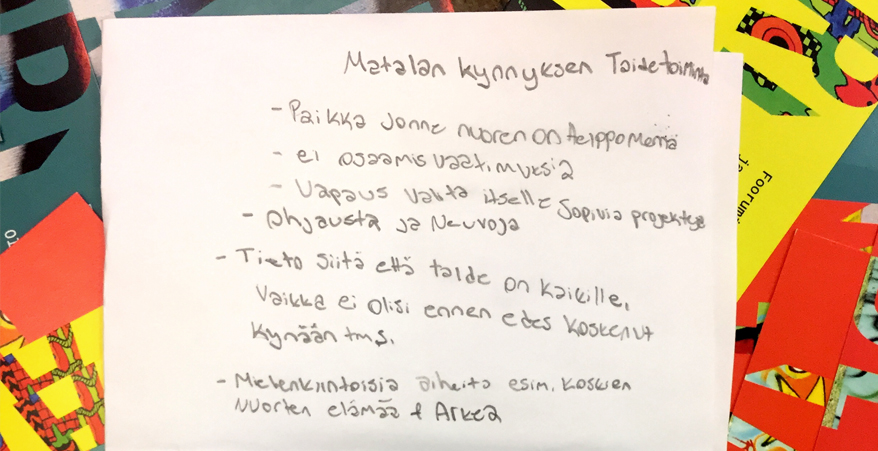 Matalan kynnyksen Taidetoiminta
- Paikka jonne nuoren on helppo mennä
- ei osaamisvaatimuksia
- Vapaus valita itselle sopivia projekteja
- Ohjausta ja Neuvoja
- Tieto siitä että taide on kaikille,
vaikka ei olisi ennen edes koskenut
kynään tms.
- Mielenkiintoisia aiheita esim. koskien
nuorten elämää & Arkea
Foorumi
ja